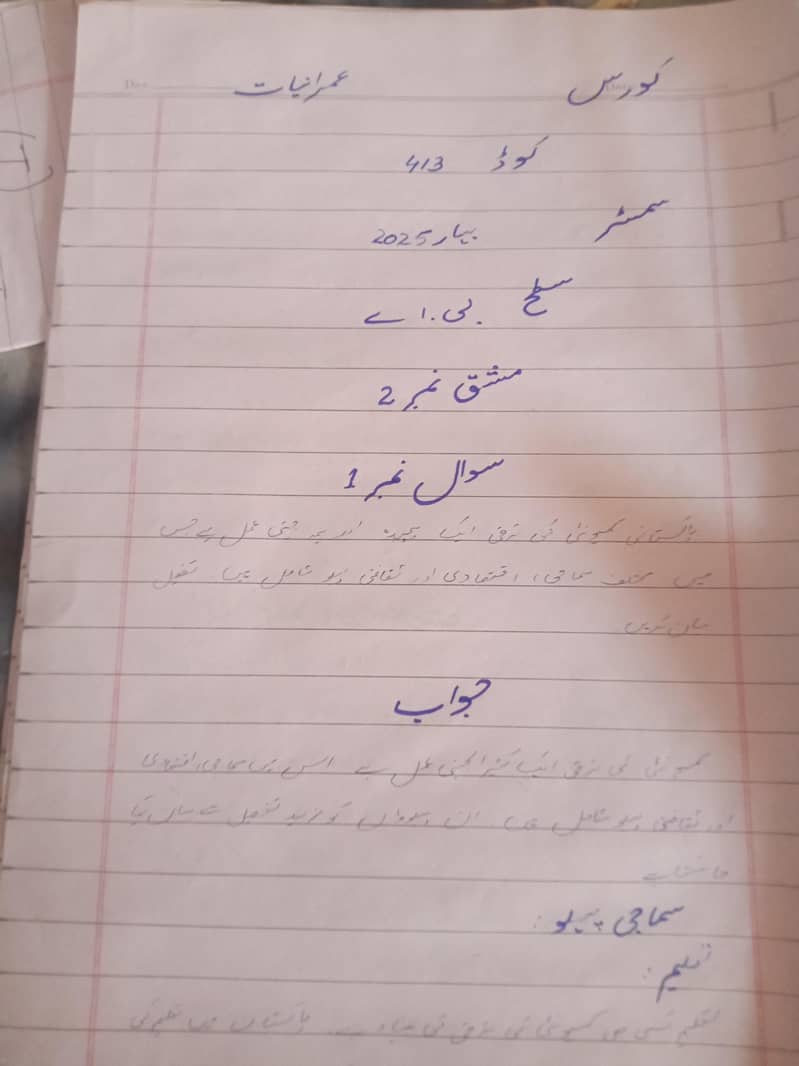 کورس عمرانیات
کوڈ 413
سمسٹر بہار 2025
سطح بی.اے
مشق نمبر 2
سوال نمبر 1
پاکستانی کمیونٹی کی ترقی ایک پیچیدہ اور ہمہ جہتی عمل ہے جس
میں مختلف سماجی، اقتصادی اور ثقافتی پہلو شامل ہیں۔ تفصیل
بیان کریں
جواب
کمیونٹی کی ترقی ایک کثیر الجہتی عمل ہے اس میں سماجی، اقتصادی
اور ثقافتی پہلو شامل ہیں۔ ان پہلوؤں کو مزید تفصیل سے بیان کیا
جا سکتا ہے
سماجی پہلو:
تعلیم:
تعلیم کسی بھی کمیونٹی کی ترقی کی بنیاد ہے۔ پاکستان میں تعلیم کی